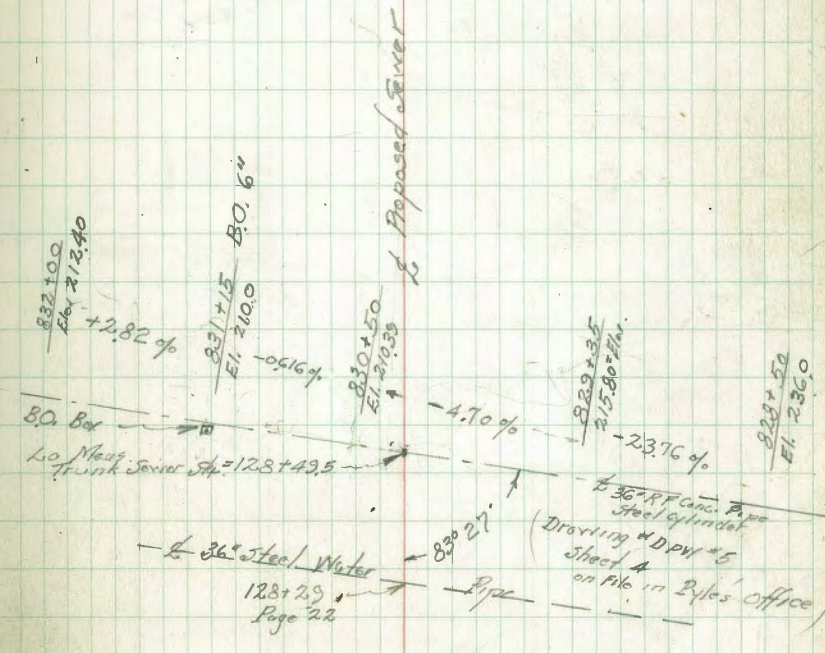 ℄ Proposed Sewer
832+00
Elev 212.40
+2.82 %
831+15 B.O. 6"
El. 210.0
-0.616 %
830+50
El. 210.39
-4.70 %
829+35
215.80 = Elev.
-23.76 %
828+50
El. 236.0
B.O. Box
Lo Meas.
Trunk Sewer Sta. = 128+49.5
℄ 36" R F Conc. Pipe
Steel Cylinder
(Drawing # DPW #5
Sheet 4
on File in Pyles' Office)
83° 27'
℄ 36" Steel Water Pipe
128+29
Page 22